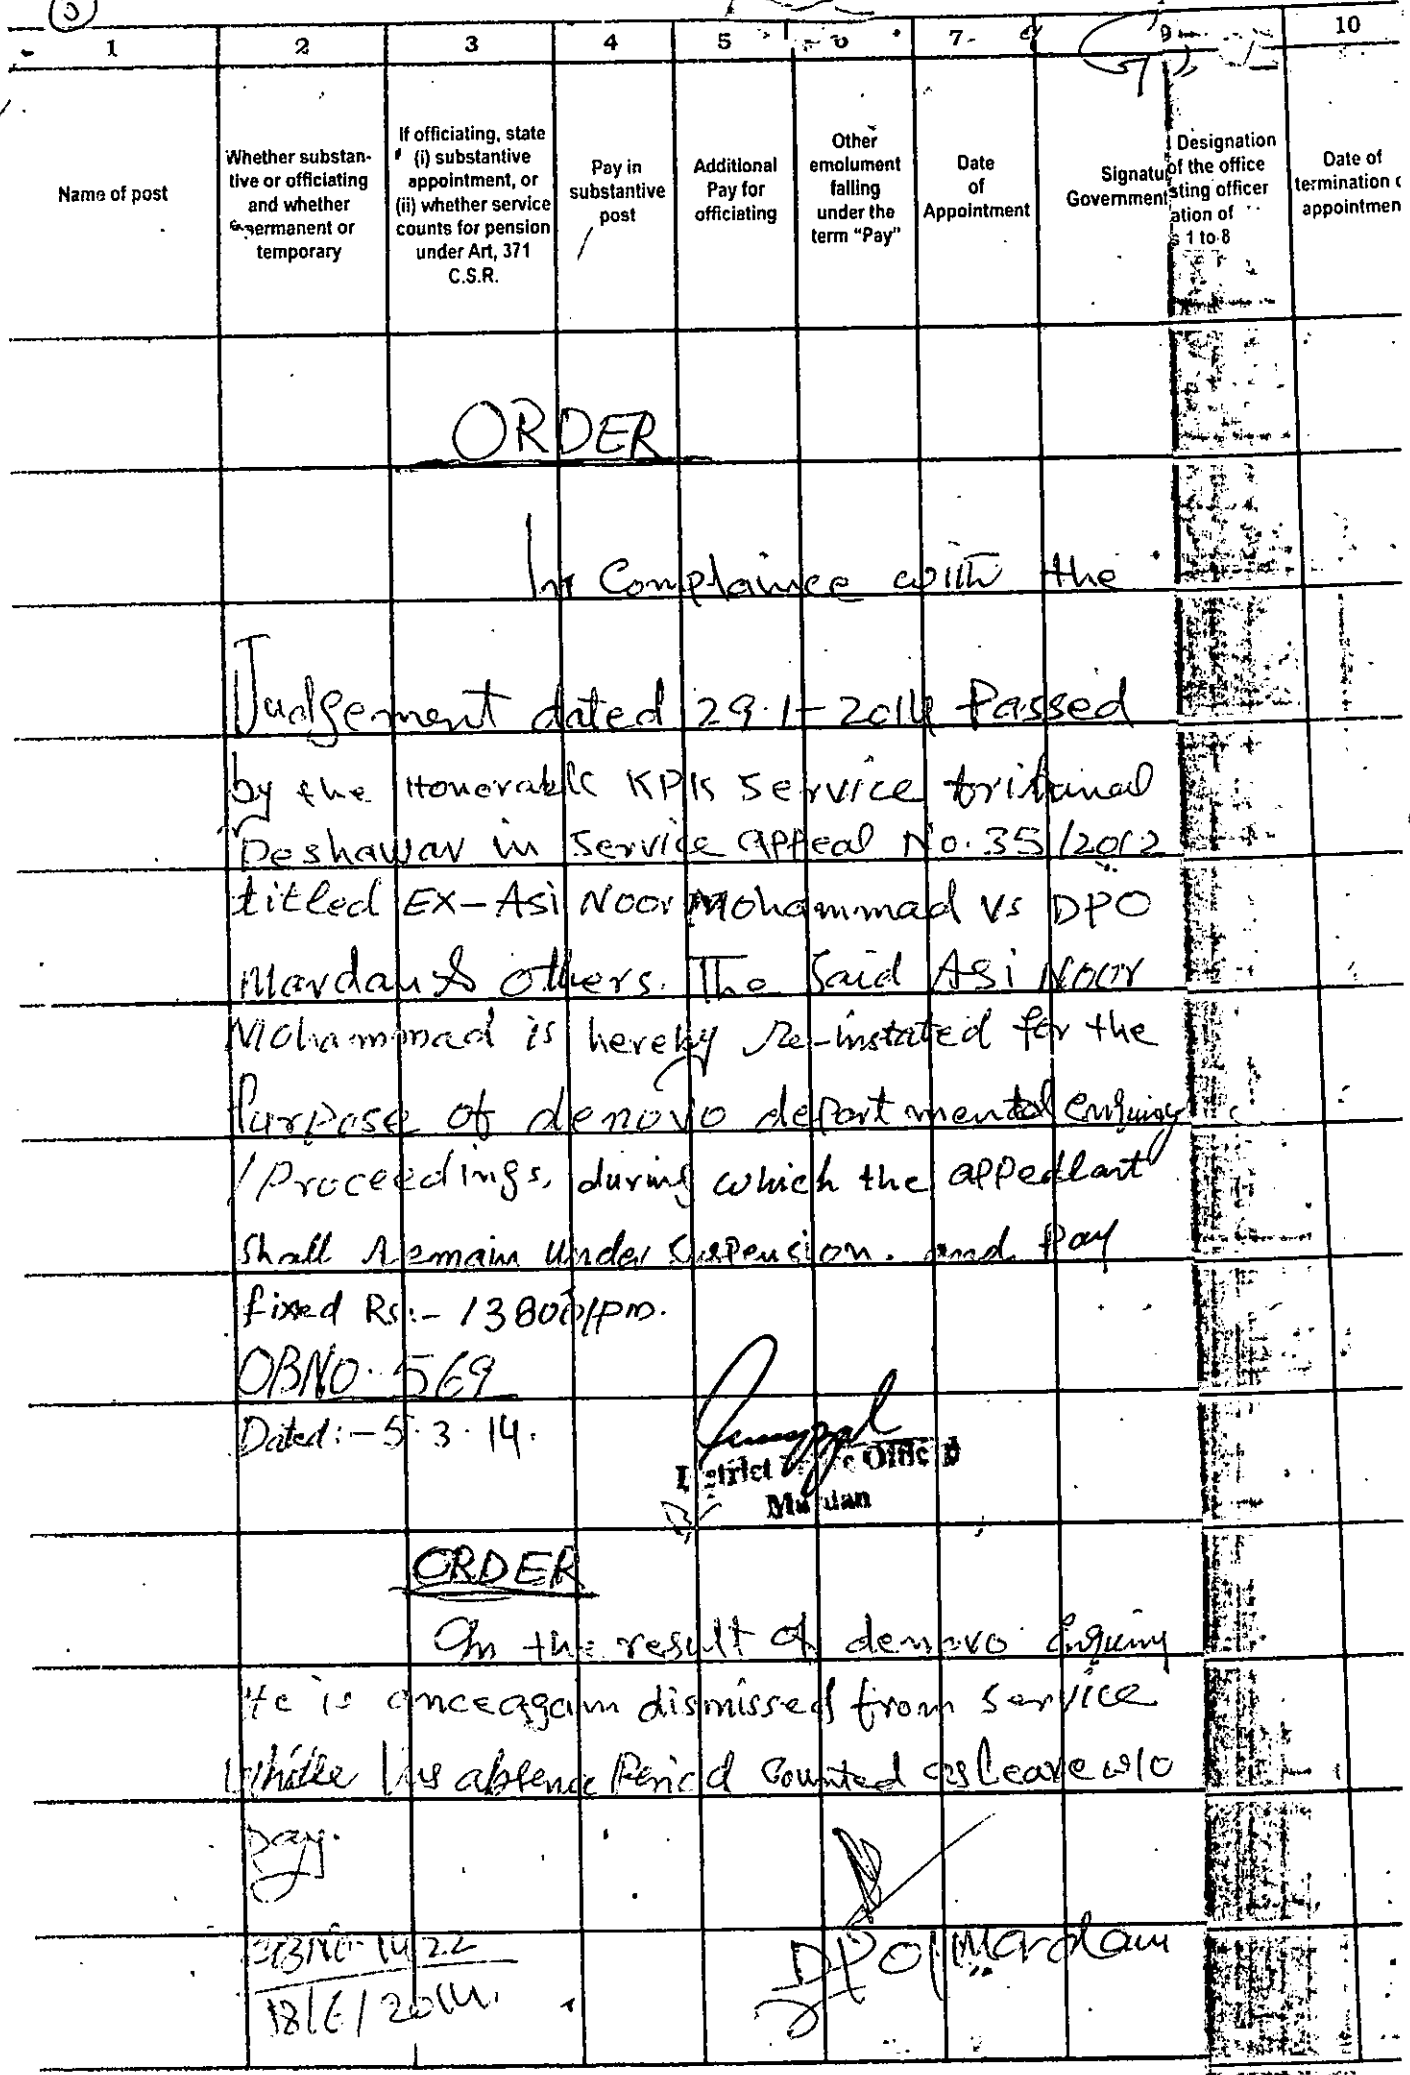 3
1 2 3 4 5 6 7 9 10
Name of post
Whether substan-
tive or officiating
and whether
permanent or
temporary
If officiating, state
(i) substantive
appointment, or
(ii) whether service
counts for pension
under Art, 371
C.S.R.
Pay in
substantive
post
Additional
Pay for
officiating
Other
emolument
falling
under the
term "Pay"
Date
of
Appointment
Signatu
Government
Designation
of the office
sting officer
ation of
1 to 8
Date of
termination
appointmen
ORDER
In Complaince with the
Judgement dated 29-1-2014 Passed
by the Honorable KPK Service tribunal
Peshawar in Service appeal No. 35/2012
titled EX-Asi Noor Mohammad vs DPO
Mardan & others. The Said ASi Noor
Mohammad is hereby Re-instated for the
Purpose of denovo departmental enquiry
/Proceedings, during which the appeallant
Shall Remain under Suspension. and Pay
fixed Rs:- 13800/pm.
OBNO. 569
Dated:- 5.3.14.
District Officer
Mardan
ORDER
On the result of denovo Enquiry
He is once again dismissed from Service
While his absence Period Counted as Leave w/o
Pay.
OBNO 1422
18/6/2014.
DPO/Mardan